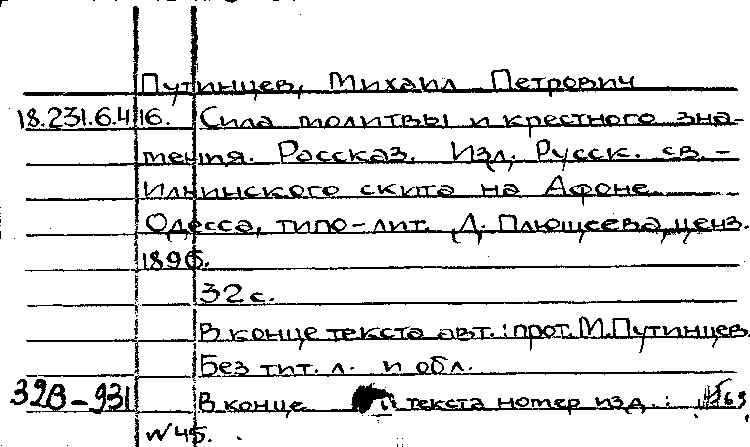 Путинцев, Михаил Петрович
18.231.6.4 16. Сила молитвы и крестного зна-
мения. Рассказ. Изд. Русск. св.-
Ильинского скита на Афоне.
Одесса, типо-лит. Д. Плющеева, ценз.
1896.
32 с.
В конце текста авт.: прот. М. Путинцев.
Без тит. л. и обл.
32В-931 В конце текста номер изд.:
№ 45.